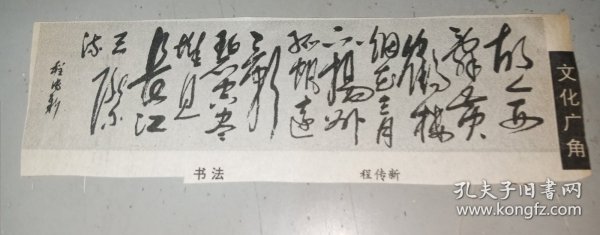 故人西
辞黄
鹤楼
烟花三月
下揚州
孤帆遠
影
碧空尽
惟见
長江
天際
流
程传新
文化广角
书法
程传新
孔夫子旧书网
www.kongfz.com